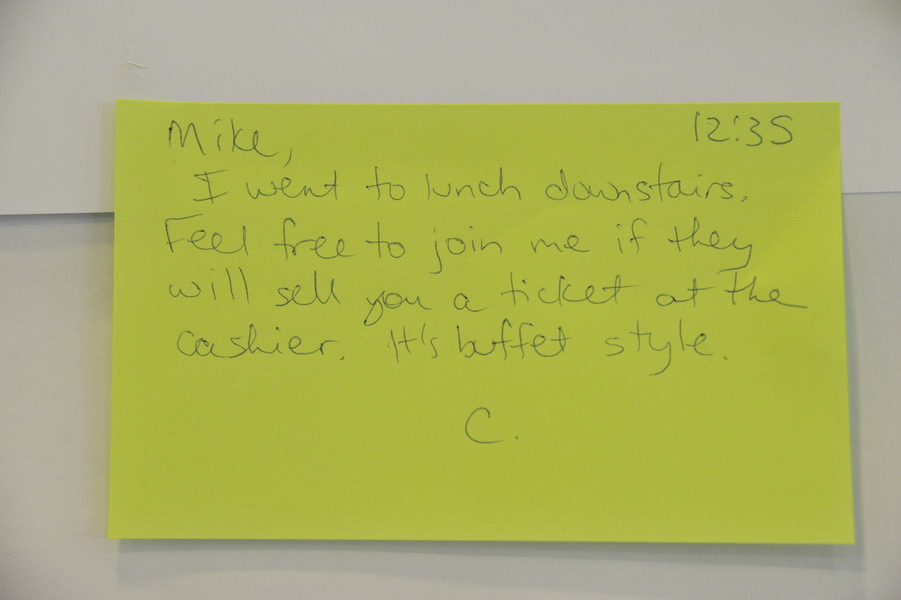 Mike, 12:35
I went to lunch downstairs.
Feel free to join me if they
will sell you a ticket at the
cashier. It's buffet style.
C.